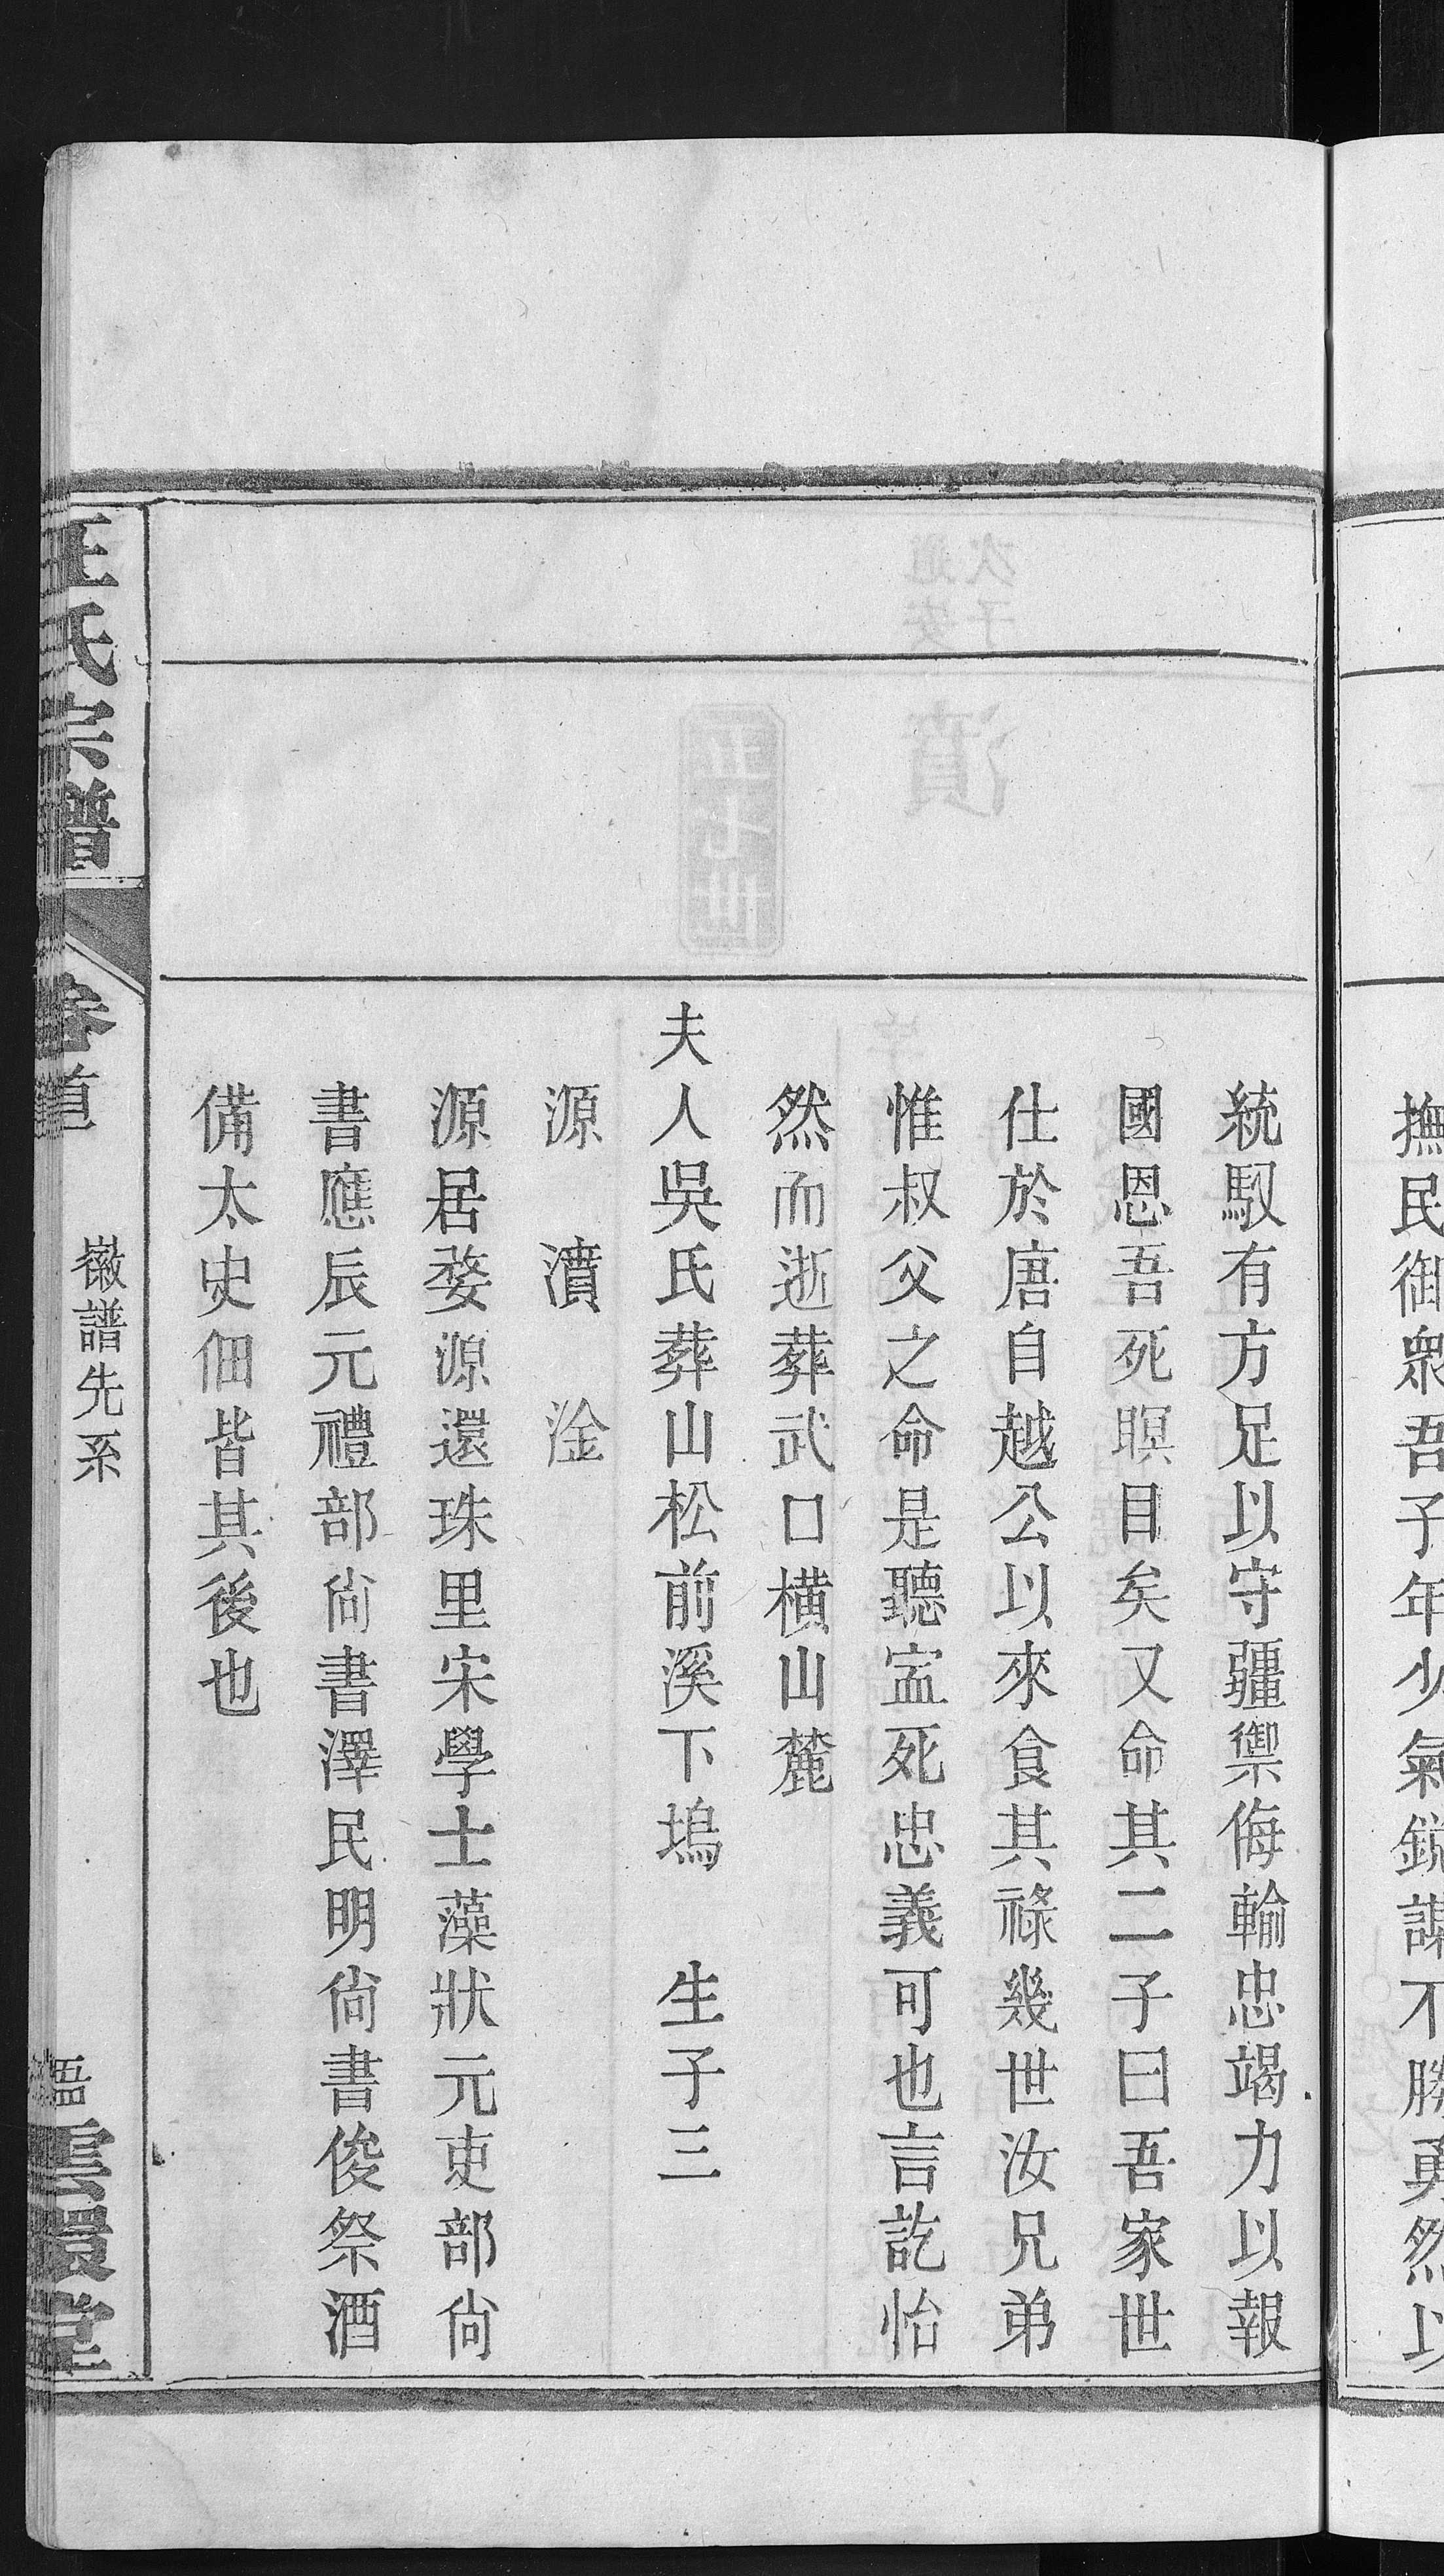 撫民御衆吾子年少氣銳謀不勝勇然以
統馭有方足以守疆禦侮輸忠竭力以報
國恩吾死瞑目矣又命其二子曰吾家世
仕於唐自越公以來食其祿幾世汝兄弟
惟叔父之命是聽寍死忠義可也言訖怡
然而逝葬武口橫山麓
夫人吳氏葬山松前溪下塢　生子三
源　濆　淦
源居婺源還珠里宋學士藻狀元吏部尙
書應辰元禮部尙書澤民明尙書俊祭酒
偹太史佃皆其後也
汪氏宗譜
卷首
徽譜先系
雲環堂